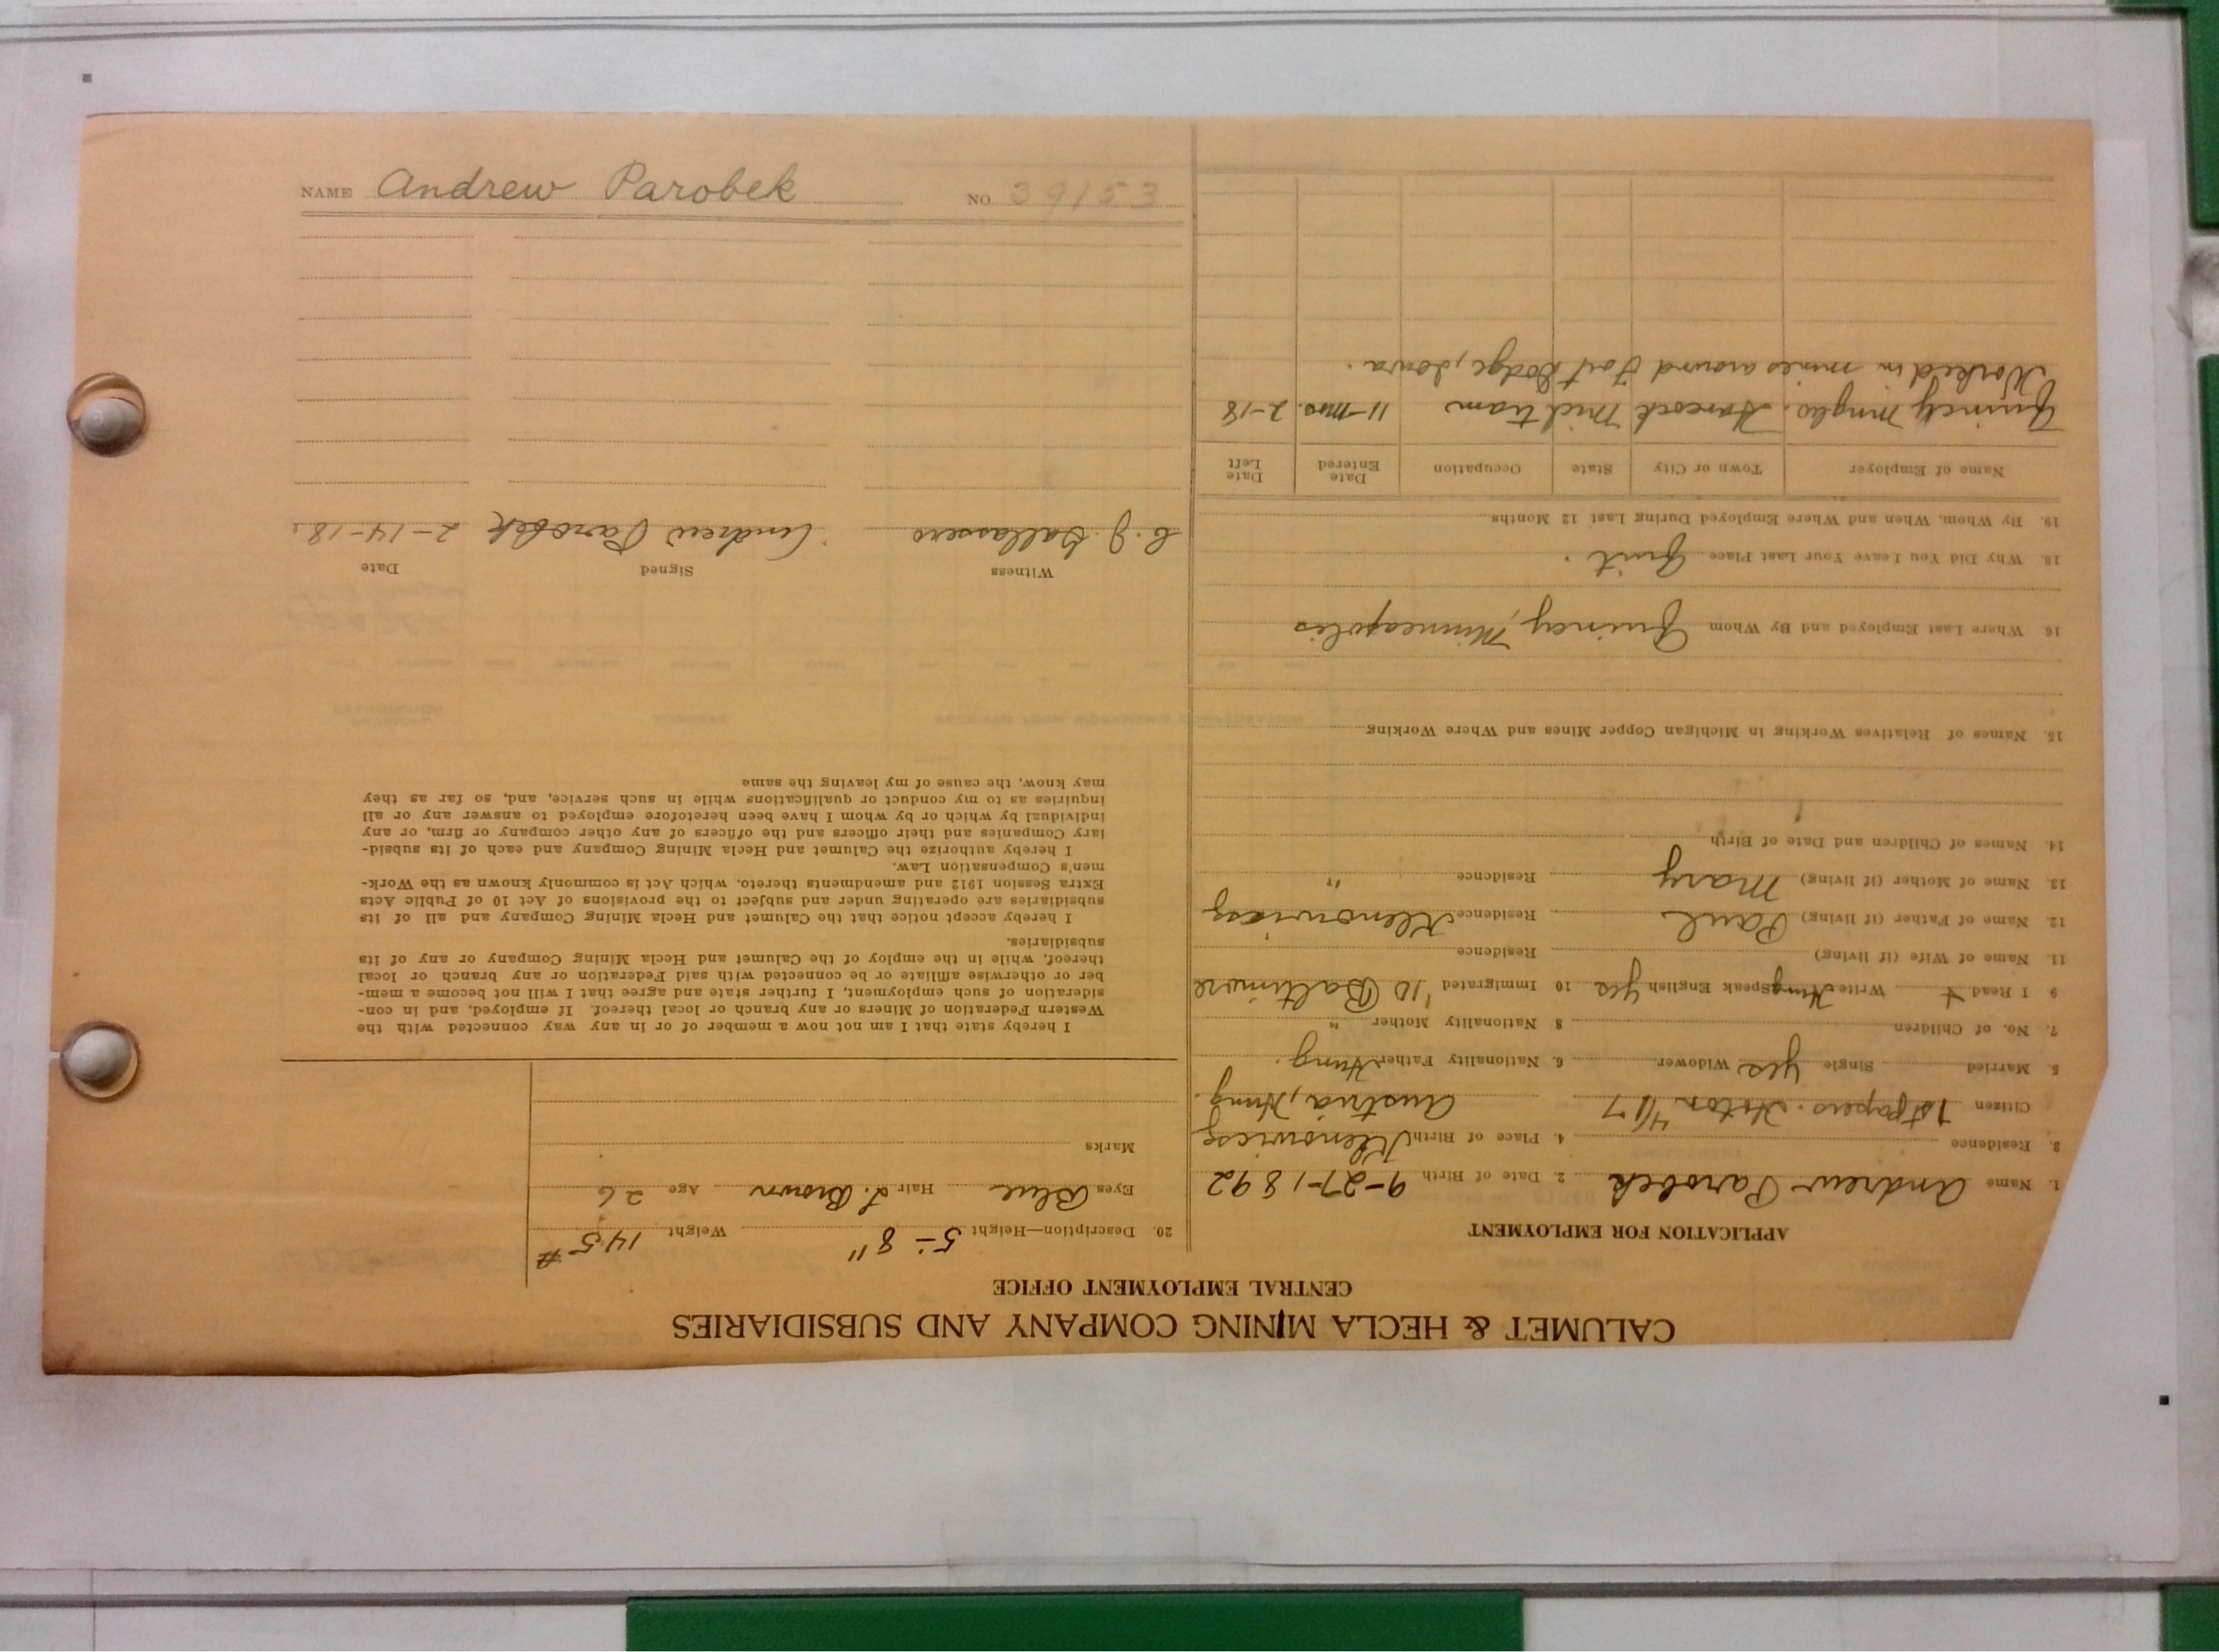 NAME Andrew Parobek NO 39153
CALUMET & HECLA MINING COMPANY AND SUBSIDIARIES
CENTRAL EMPLOYMENT OFFICE
APPLICATION FOR EMPLOYMENT
1. Name Andrew Parobek 2. Date of Birth 9-27-1892
3. Residence 4. Place of Birth Klenowicsz
Citizen 1st papers. 4/17 Austria, Hung.
5 Married Single yes Widower 6. Nationality Father Hung.
7. No. of Children 8 Nationality Mother "
9 I Read + Write Hung Speak English yes 10 Immigrated '10 Baltimore
11. Name of Wife (if living) Residence
12. Name of Father (if living) Paul Residence Klenowicsz
13. Name of Mother (if living) Mary Residence "
14. Names of Children and Date of Birth
15. Names of Relatives Working in Michigan Copper Mines and Where Working
16. Where Last Employed and By Whom Quincy, Minneapolis
18. Why Did You Leave Your Last Place Quit.
19. By Whom, When and Where Employed During Last 12 Months
Name of Employer Town or City State Occupation Date Entered Date Left
Quincy Mng Co. Hancock Mich tram 11-mos. 2-18
Worked in mines around Fort Dodge, Iowa.
20. Description—Height 5-8" Weight 145#
Eyes Blue Hair L. Brown Age 26
Marks
I hereby state that I am not now a member of or in any way connected with the
Western Federation of Miners or any branch or local thereof. If employed, and in con-
sideration of such employment, I further state and agree that I will not become a mem-
ber or otherwise affiliate or be connected with said Federation or any branch or local
thereof, while in the employ of the Calumet and Hecla Mining Company or any of its
subsidiaries.
I hereby accept notice that the Calumet and Hecla Mining Company and all of its
subsidiaries are operating under and subject to the provisions of Act 10 of Public Acts
Extra Session 1912 and amendments thereto, which Act is commonly known as the Work-
men's Compensation Law.
I hereby authorize the Calumet and Hecla Mining Company and each of its subsid-
iary Companies and their officers and the officers of any other company or firm, or any
individual by which or by whom I have been heretofore employed to answer any or all
inquiries as to my conduct or qualifications while in such service, and, so far as they
may know, the cause of my leaving the same
Witness Signed Date
C. J. Andrew Parobek 2-14-18.